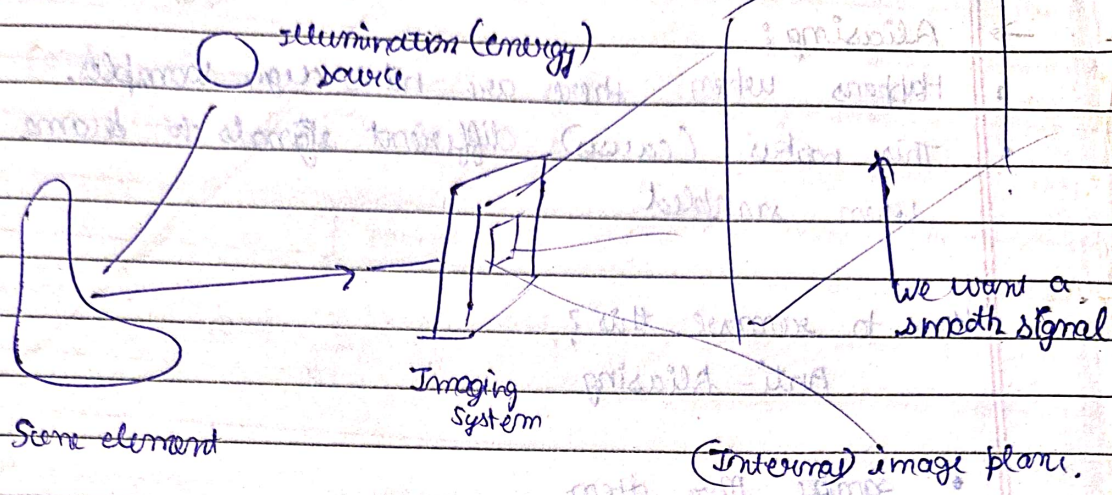 Illumination (energy)
source
We want a
smooth signal
Imaging
System
Scene element
(Internal) image plane.